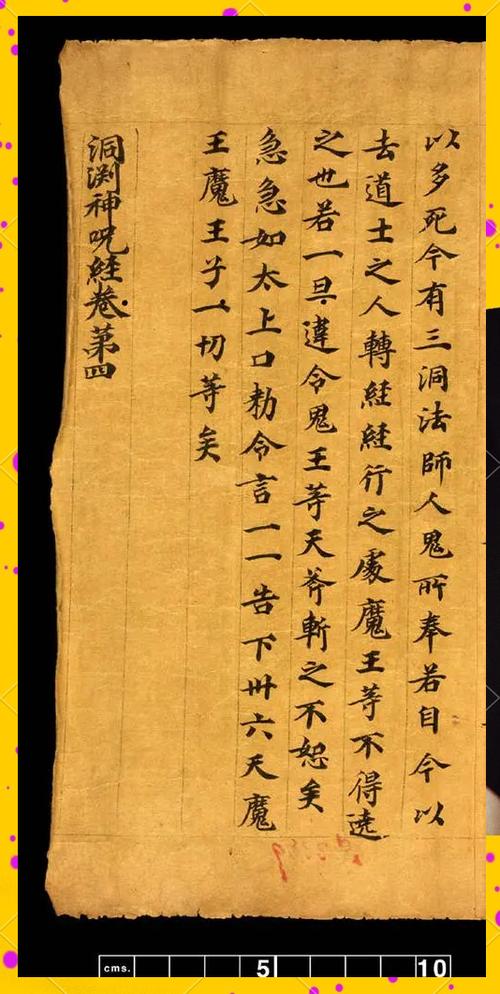 以多死今有三洞法師人鬼所奉若自今以
去道士之人轉経経行之處魔王等不得遶
之世若一旦違令鬼王等天斧斬之不恕矣
急急如太上口勑令言一一告下卅六天魔
王魔王子一切等矣
洞渊神呪経卷第四
cms. 5 10